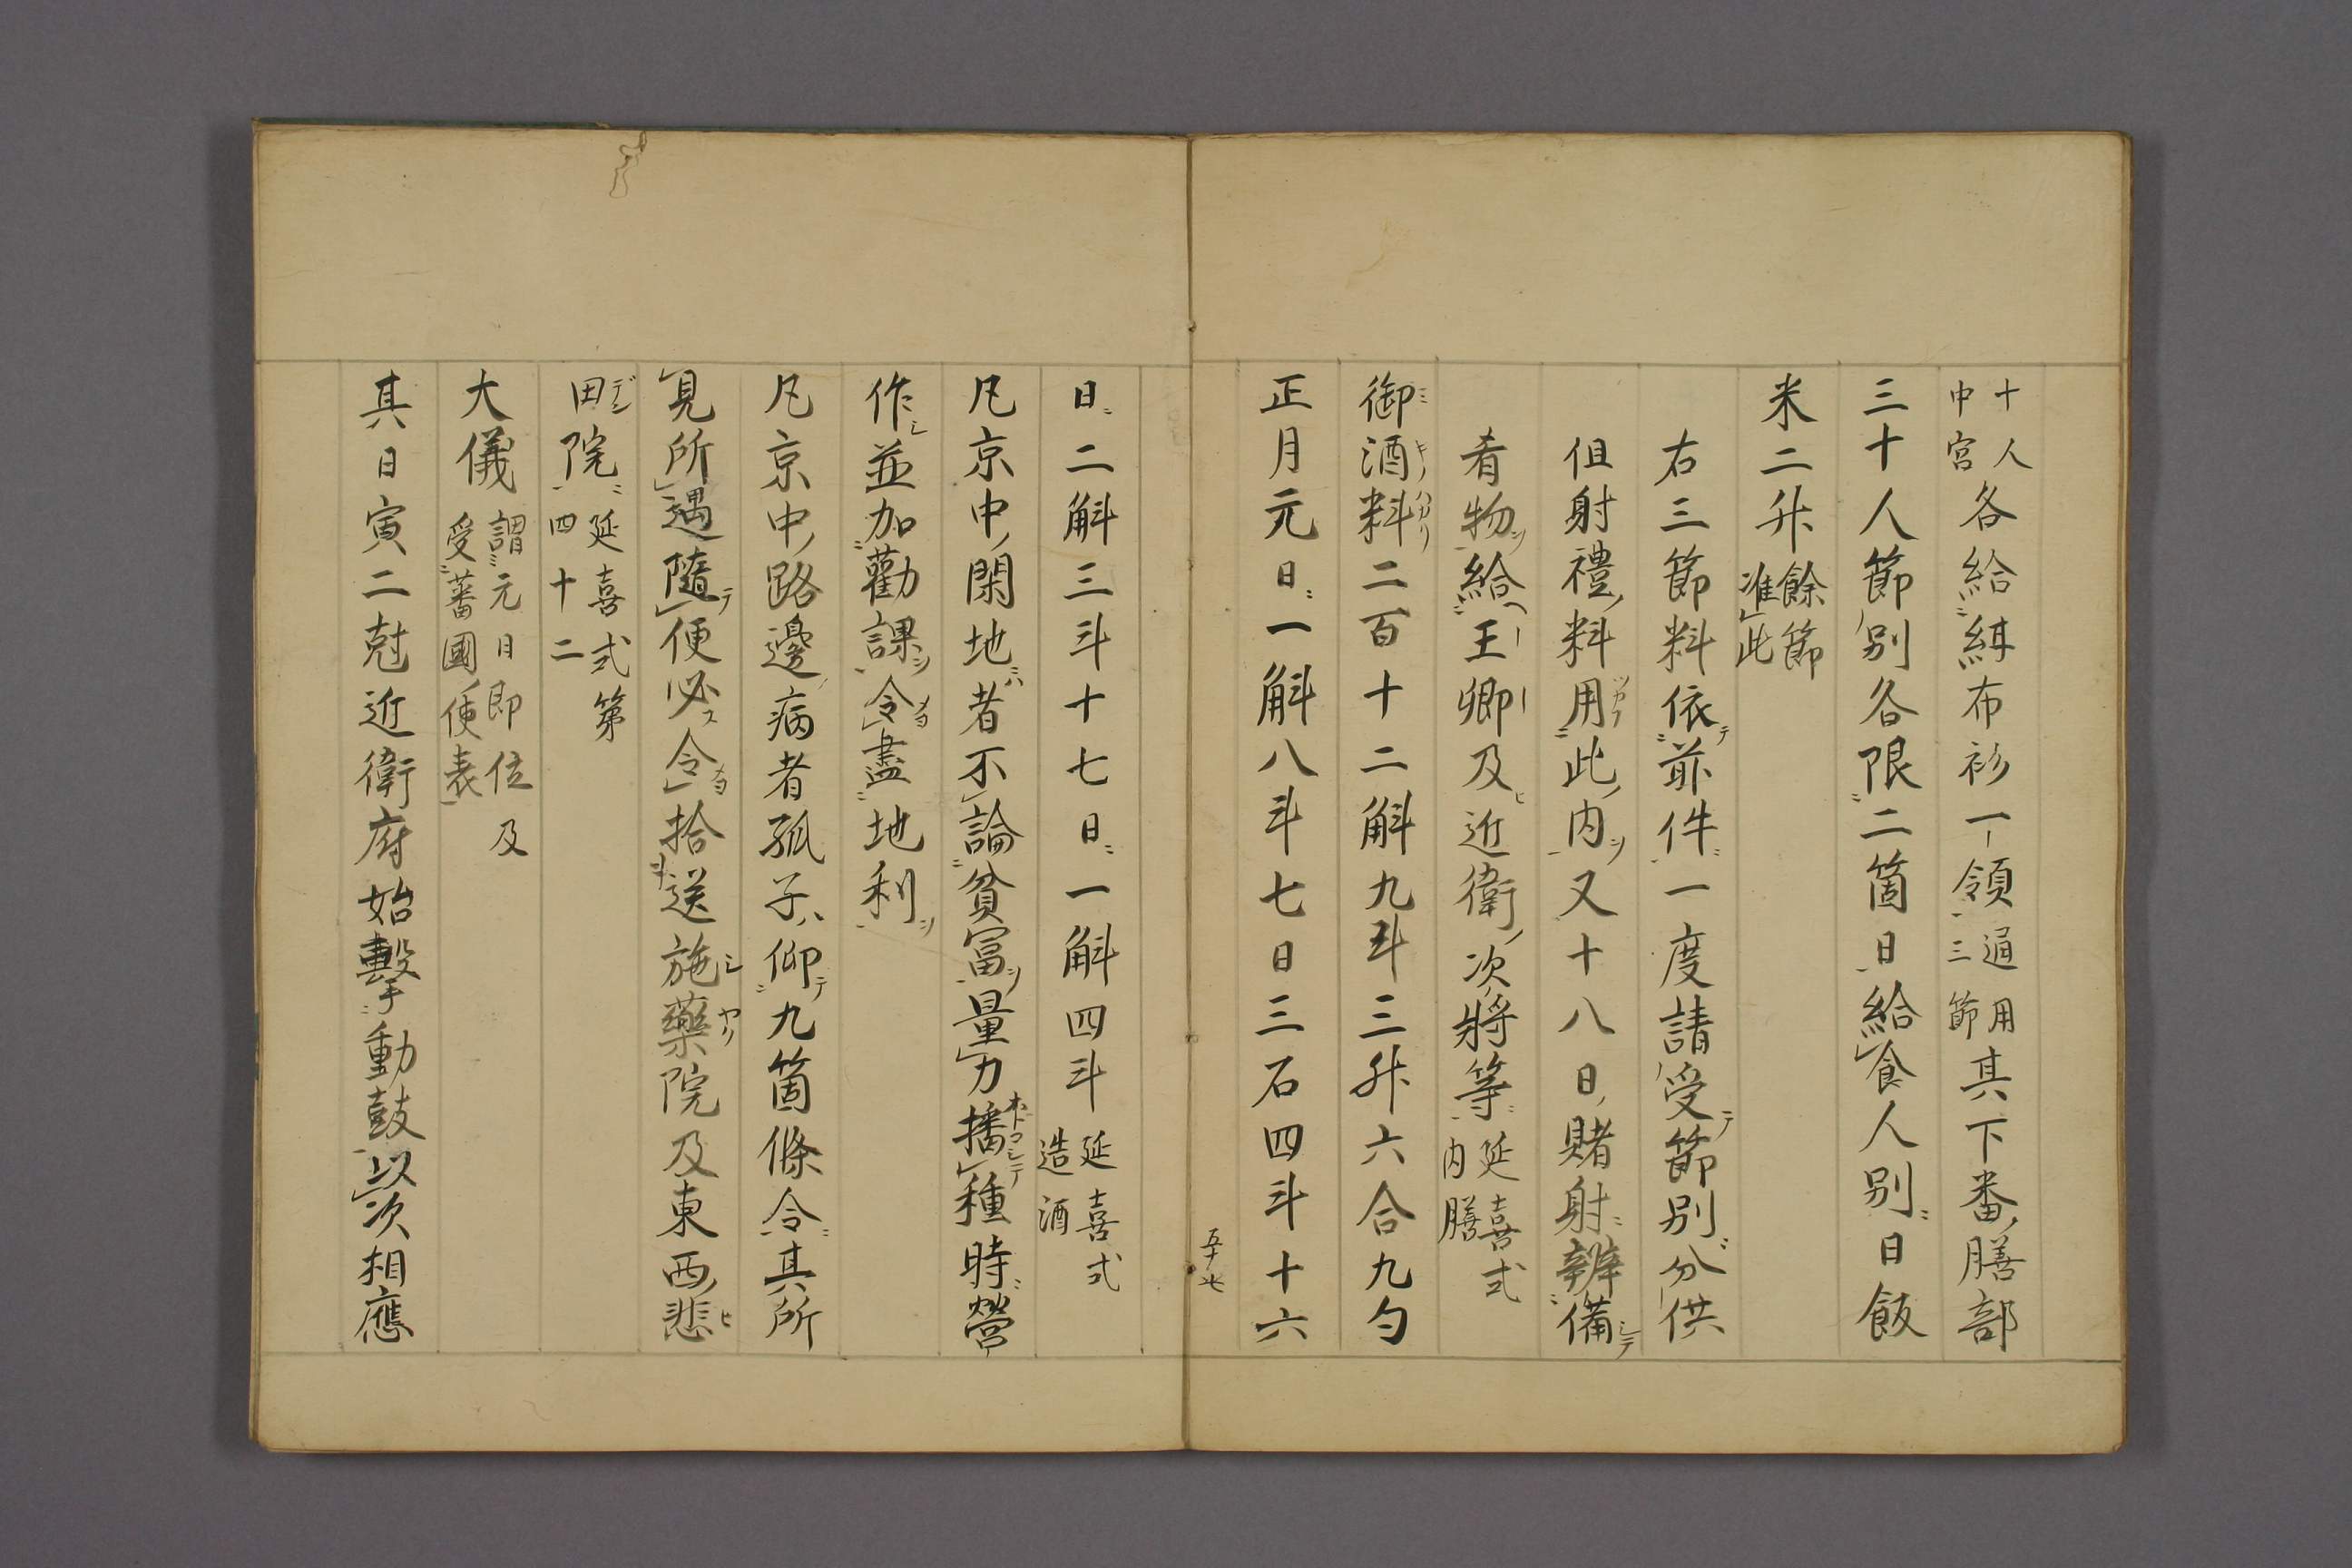 十人中宮各給縹布衫一領通用三節其下番膳部
三十人節別各限二箇日給食人別日飯
米二升餘節准此
右三節料依前件一度請受節別分供
但射禮料用此内又十八日賭射辨備
肴物給王卿及近衛次將等延喜式内膳
御酒料二百十二斛九斗三升六合九勺
正月元日一斛八斗七日三石四斗十六
五十七
日二斛三斗十七日一斛四斗延喜式造酒
凡京中閑地者不論貧富量力播種時營
作並加勸課令盡地利
凡京中路邊病者孤子仰九箇條令其所
見所遇隨便必令拾送施藥院及東西悲
田院延喜式第四十二
大儀謂元日即位及受蕃國使表
其日寅二尅近衛府始擊動鼓以次相應